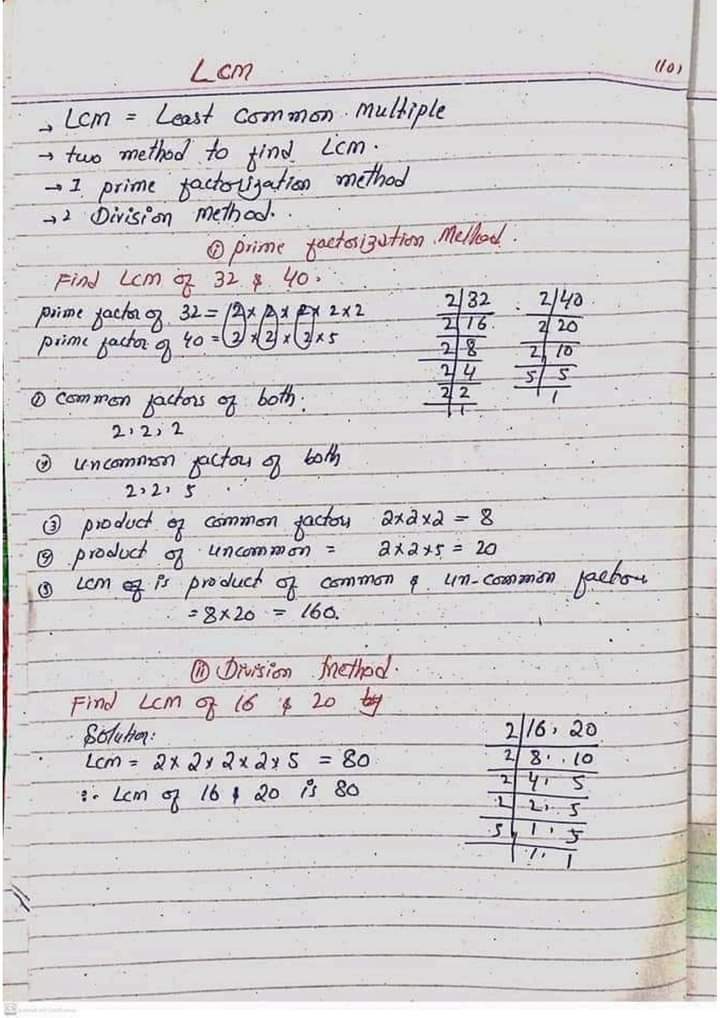 Lcm
(10)
→ Lcm = Least Common Multiple
→ two method to find Lcm.
→ 1 prime factorization method
→ 2 Division Method.
① prime factorization Method.
Find Lcm of 32 & 40.
prime factor of 32 = 2 x 2 x 2 x 2 x 2
prime factor of 40 = 2 x 2 x 2 x 5
2 | 32
2 | 16
2 | 8
2 | 4
2 | 2
1
2 | 40
2 | 20
2 | 10
5 | 5
1
① Common factors of both.
2, 2, 2
② uncommon factors of both
2, 2, 5
③ product of common factors 2x2x2 = 8
④ product of uncommon = 2x2x5 = 20
⑤ Lcm is product of common & un-common factors
= 8x20 = 160.
ⓘⓘ Division Method.
Find Lcm of 16 & 20
Solution:
Lcm = 2 x 2 x 2 x 2 x 5 = 80
∴ Lcm of 16 & 20 is 80
2 | 16, 20
2 | 8, 10
2 | 4, 5
2 | 2, 5
5 | 1, 5
| 1, 1